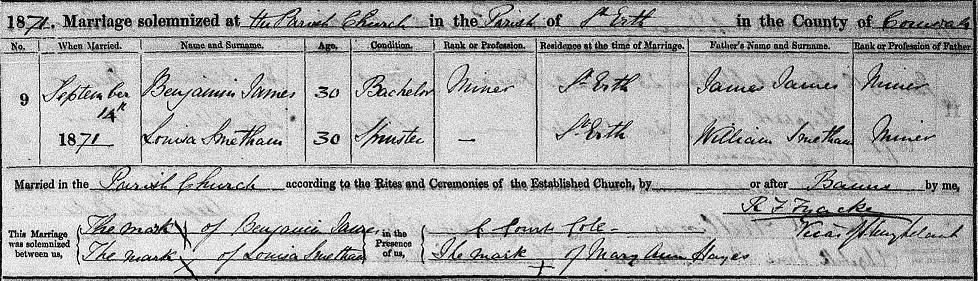 1871. Marriage solemnized at the Parish Church in the Parish of St Erth in the County of Cornwall
No. When Married. Name and Surname. Age. Condition. Rank or Profession. Residence at the time of Marriage. Father's Name and Surname. Rank or Profession of Father.
9 September 14th 1871 Benjamin James 30 Bachelor Miner St Erth James James Miner
Louisa Smetham 30 Spinster — St Erth William Smetham Miner
Married in the Parish Church according to the Rites and Ceremonies of the Established Church, by or after Banns by me,
R F
Vicar of
This Marriage was solemnized between us, The mark X of Benjamin James in the Presence of us, Court Cole
The mark X of Louisa Smetham The mark X of Mary Ann Hayes